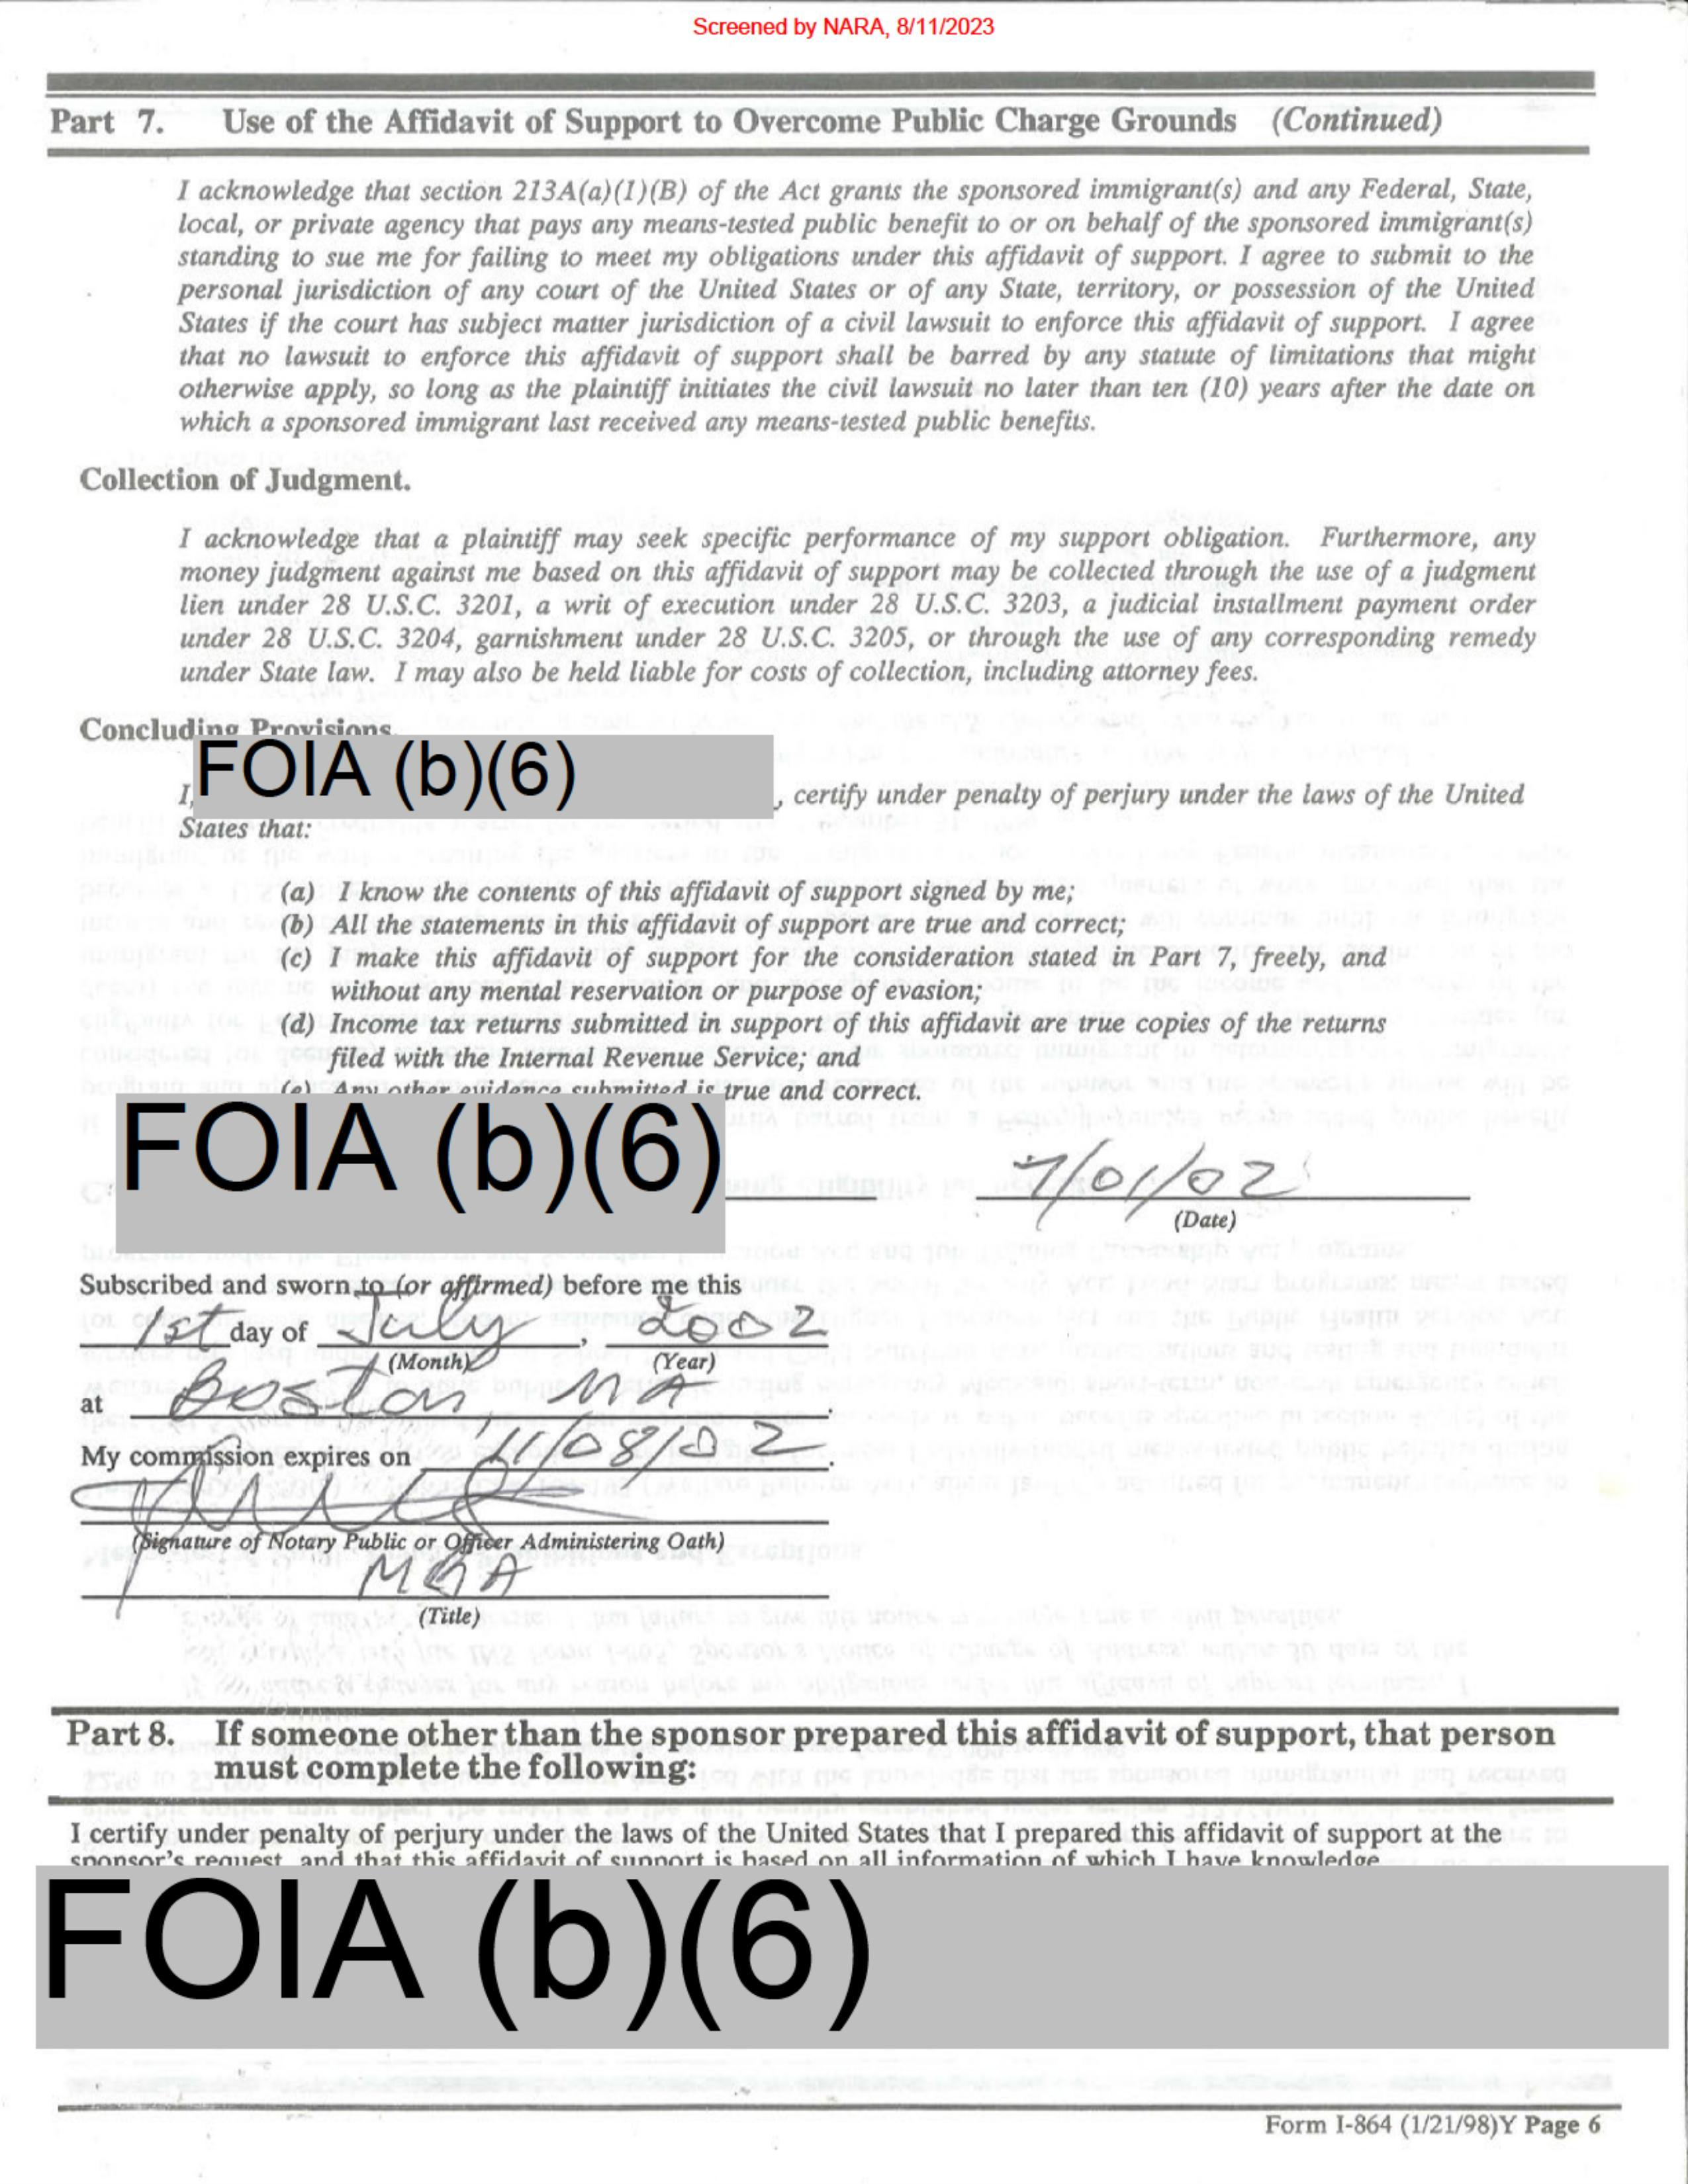 Screened by NARA, 8/11/2023
Part 7. Use of the Affidavit of Support to Overcome Public Charge Grounds (Continued)
I acknowledge that section 213A(a)(1)(B) of the Act grants the sponsored immigrant(s) and any Federal, State,
local, or private agency that pays any means-tested public benefit to or on behalf of the sponsored immigrant(s)
standing to sue me for failing to meet my obligations under this affidavit of support. I agree to submit to the
personal jurisdiction of any court of the United States or of any State, territory, or possession of the United
States if the court has subject matter jurisdiction of a civil lawsuit to enforce this affidavit of support. I agree
that no lawsuit to enforce this affidavit of support shall be barred by any statute of limitations that might
otherwise apply, so long as the plaintiff initiates the civil lawsuit no later than ten (10) years after the date on
which a sponsored immigrant last received any means-tested public benefits.
Collection of Judgment.
I acknowledge that a plaintiff may seek specific performance of my support obligation. Furthermore, any
money judgment against me based on this affidavit of support may be collected through the use of a judgment
lien under 28 U.S.C. 3201, a writ of execution under 28 U.S.C. 3203, a judicial installment payment order
under 28 U.S.C. 3204, garnishment under 28 U.S.C. 3205, or through the use of any corresponding remedy
under State law. I may also be held liable for costs of collection, including attorney fees.
Concluding Provisions.
FOIA (b)(6)
I, , certify under penalty of perjury under the laws of the United
States that:
(a) I know the contents of this affidavit of support signed by me;
(b) All the statements in this affidavit of support are true and correct;
(c) I make this affidavit of support for the consideration stated in Part 7, freely, and
without any mental reservation or purpose of evasion;
(d) Income tax returns submitted in support of this affidavit are true copies of the returns
filed with the Internal Revenue Service; and
(e) Any other evidence submitted is true and correct.
FOIA (b)(6)
7/01/02
(Date)
Subscribed and sworn to (or affirmed) before me this
1st day of July , 2002
(Month) (Year)
at Boston MA .
My commission expires on 11/08/02 .
(Signature of Notary Public or Officer Administering Oath)
(Title)
Part 8. If someone other than the sponsor prepared this affidavit of support, that person
must complete the following:
I certify under penalty of perjury under the laws of the United States that I prepared this affidavit of support at the
sponsor's request, and that this affidavit of support is based on all information of which I have knowledge.
FOIA (b)(6)
Form I-864 (1/21/98)Y Page 6